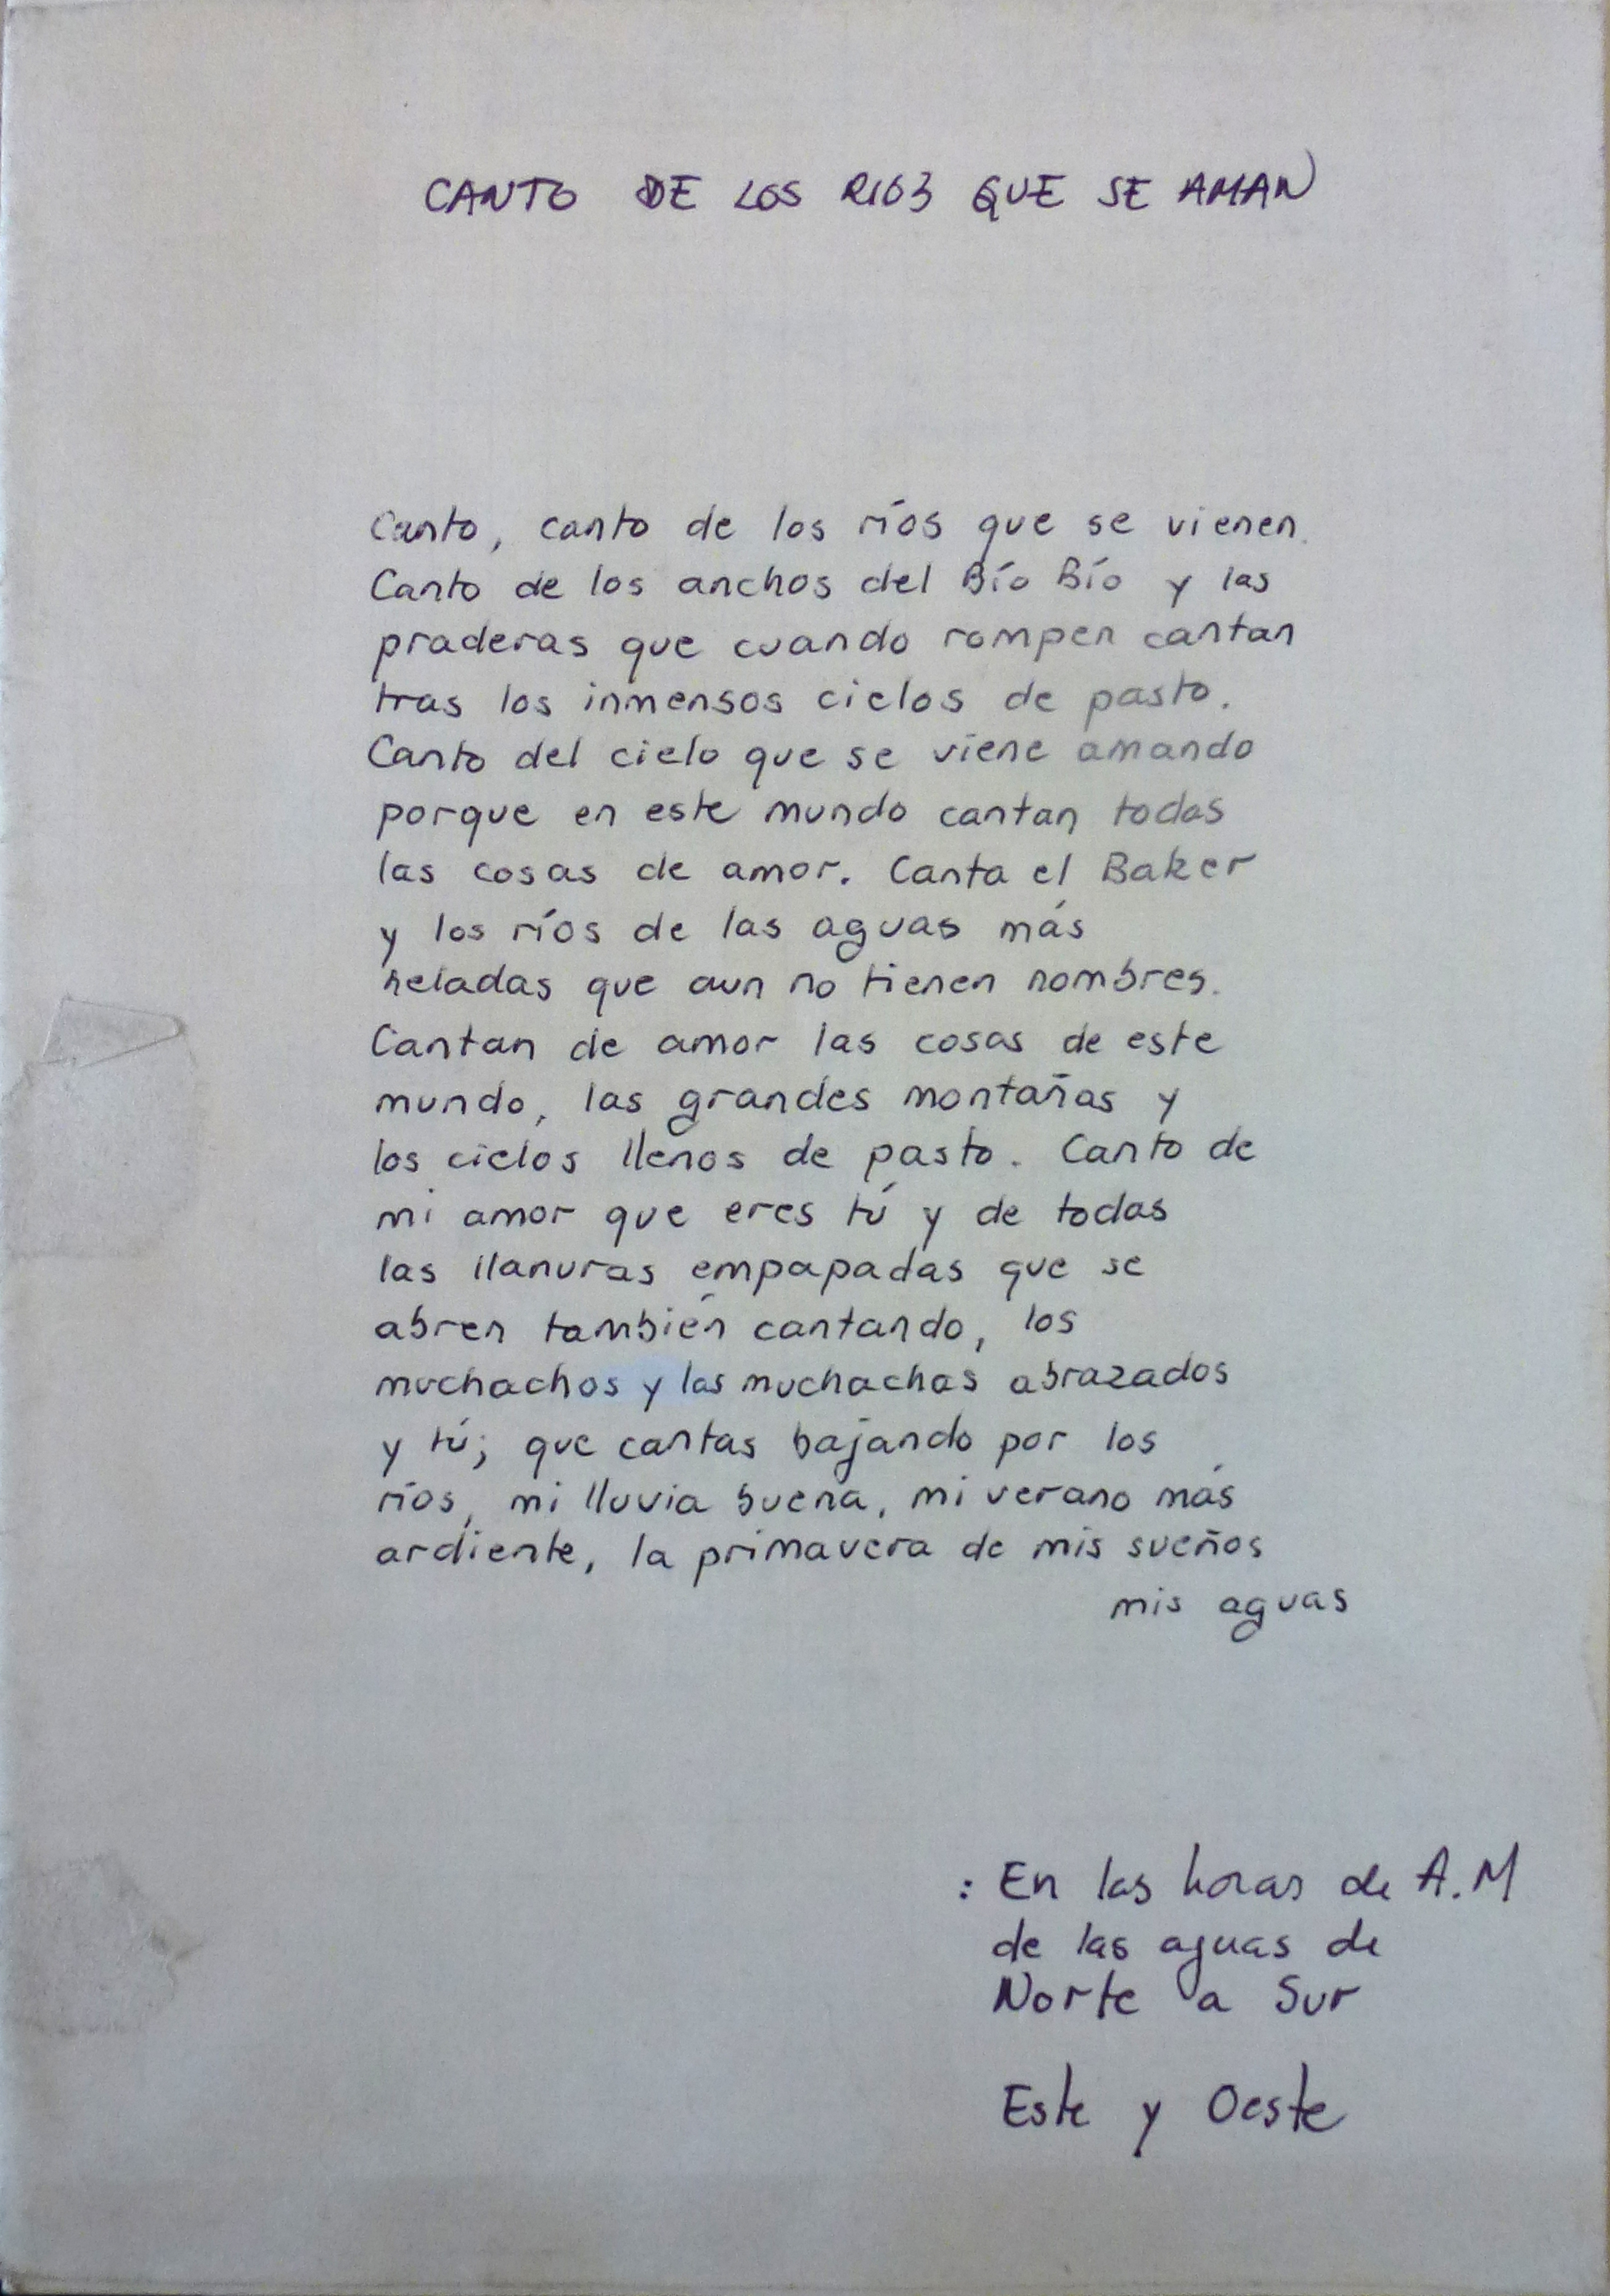 CANTO DE LOS RIOS QUE SE AMAN
Canto, canto de los ríos que se vienen.
Canto de los anchos del Bío Bío y las
praderas que cuando rompen cantan
tras los inmensos cielos de pasto.
Canto del cielo que se viene amando
porque en este mundo cantan todas
las cosas de amor. Canta el Baker
y los ríos de las aguas más
heladas que aun no tienen nombres.
Cantan de amor las cosas de este
mundo, las grandes montañas y
los cielos llenos de pasto. Canto de
mi amor que eres tú y de todas
las llanuras empapadas que se
abren también cantando, los
muchachos y las muchachas abrazados
y tú; que cantas bajando por los
ríos, mi lluvia buena, mi verano más
ardiente, la primavera de mis sueños
mis aguas
: En las horas de A.M
de las aguas de
Norte a Sur
Este y Oeste